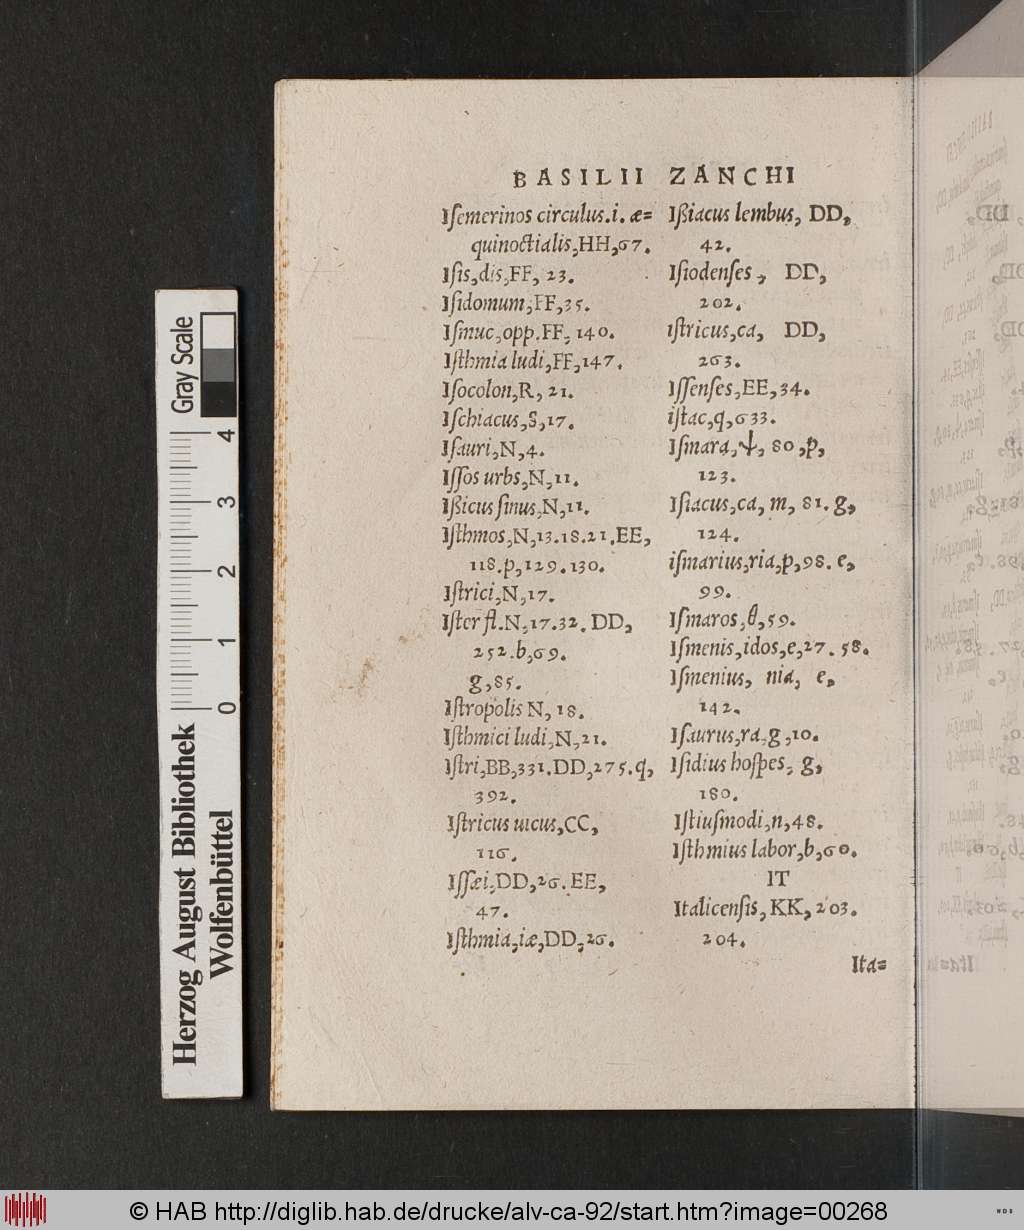 BASILII ZANCHI
Iſemerinos circulus.i. æ=
quinoctialis, HH, 67.
Iſis, dis, FF, 23.
Iſidomum, FF, 35.
Iſmuc, opp. FF, 140.
Iſthmia ludi, FF, 147.
Iſocolon, R, 21.
Iſchiacus, S, 17.
Iſauri, N, 4.
Iſſos urbs, N, 11.
Ißicus ſinus, N, 11.
Iſthmos, N, 13.18.21. EE,
118. p, 129.130.
Iſtrici, N, 17.
Iſter fl. N, 17.32. DD,
252. b, 69.
g, 85.
Iſtropolis N, 18.
Iſthmici ludi, N, 21.
Iſtri, BB, 331. DD, 275. q,
392.
Iſtricus uicus, CC,
116.
Iſſæi, DD, 26. EE,
47.
Iſthmia, iæ, DD, 26.
Ißiacus lembus, DD,
42.
Iſiodenſes, DD,
202.
iſtricus, ca, DD,
263.
Iſſenſes, EE, 34.
iſtac, q, 633.
Iſmara, ψ, 80, p,
123.
Iſiacus, ca, m, 81. g,
124.
iſmarius, ria, p, 98. e,
99.
Iſmaros, θ, 59.
Iſmenis, idos, e, 27. 58.
Iſmenius, nia, e,
142.
Iſaurus, ra, g, 10.
Iſidius hoſpes, g,
180.
Iſtiuſmodi, n, 48.
Iſthmius labor, b, 60.
IT
Italicenſis, KK, 203.
204.
Ita=
Gray Scale
4
3
2
1
0
Herzog August Bibliothek
Wolfenbüttel
© HAB http://diglib.hab.de/drucke/alv-ca-92/start.htm?image=00268